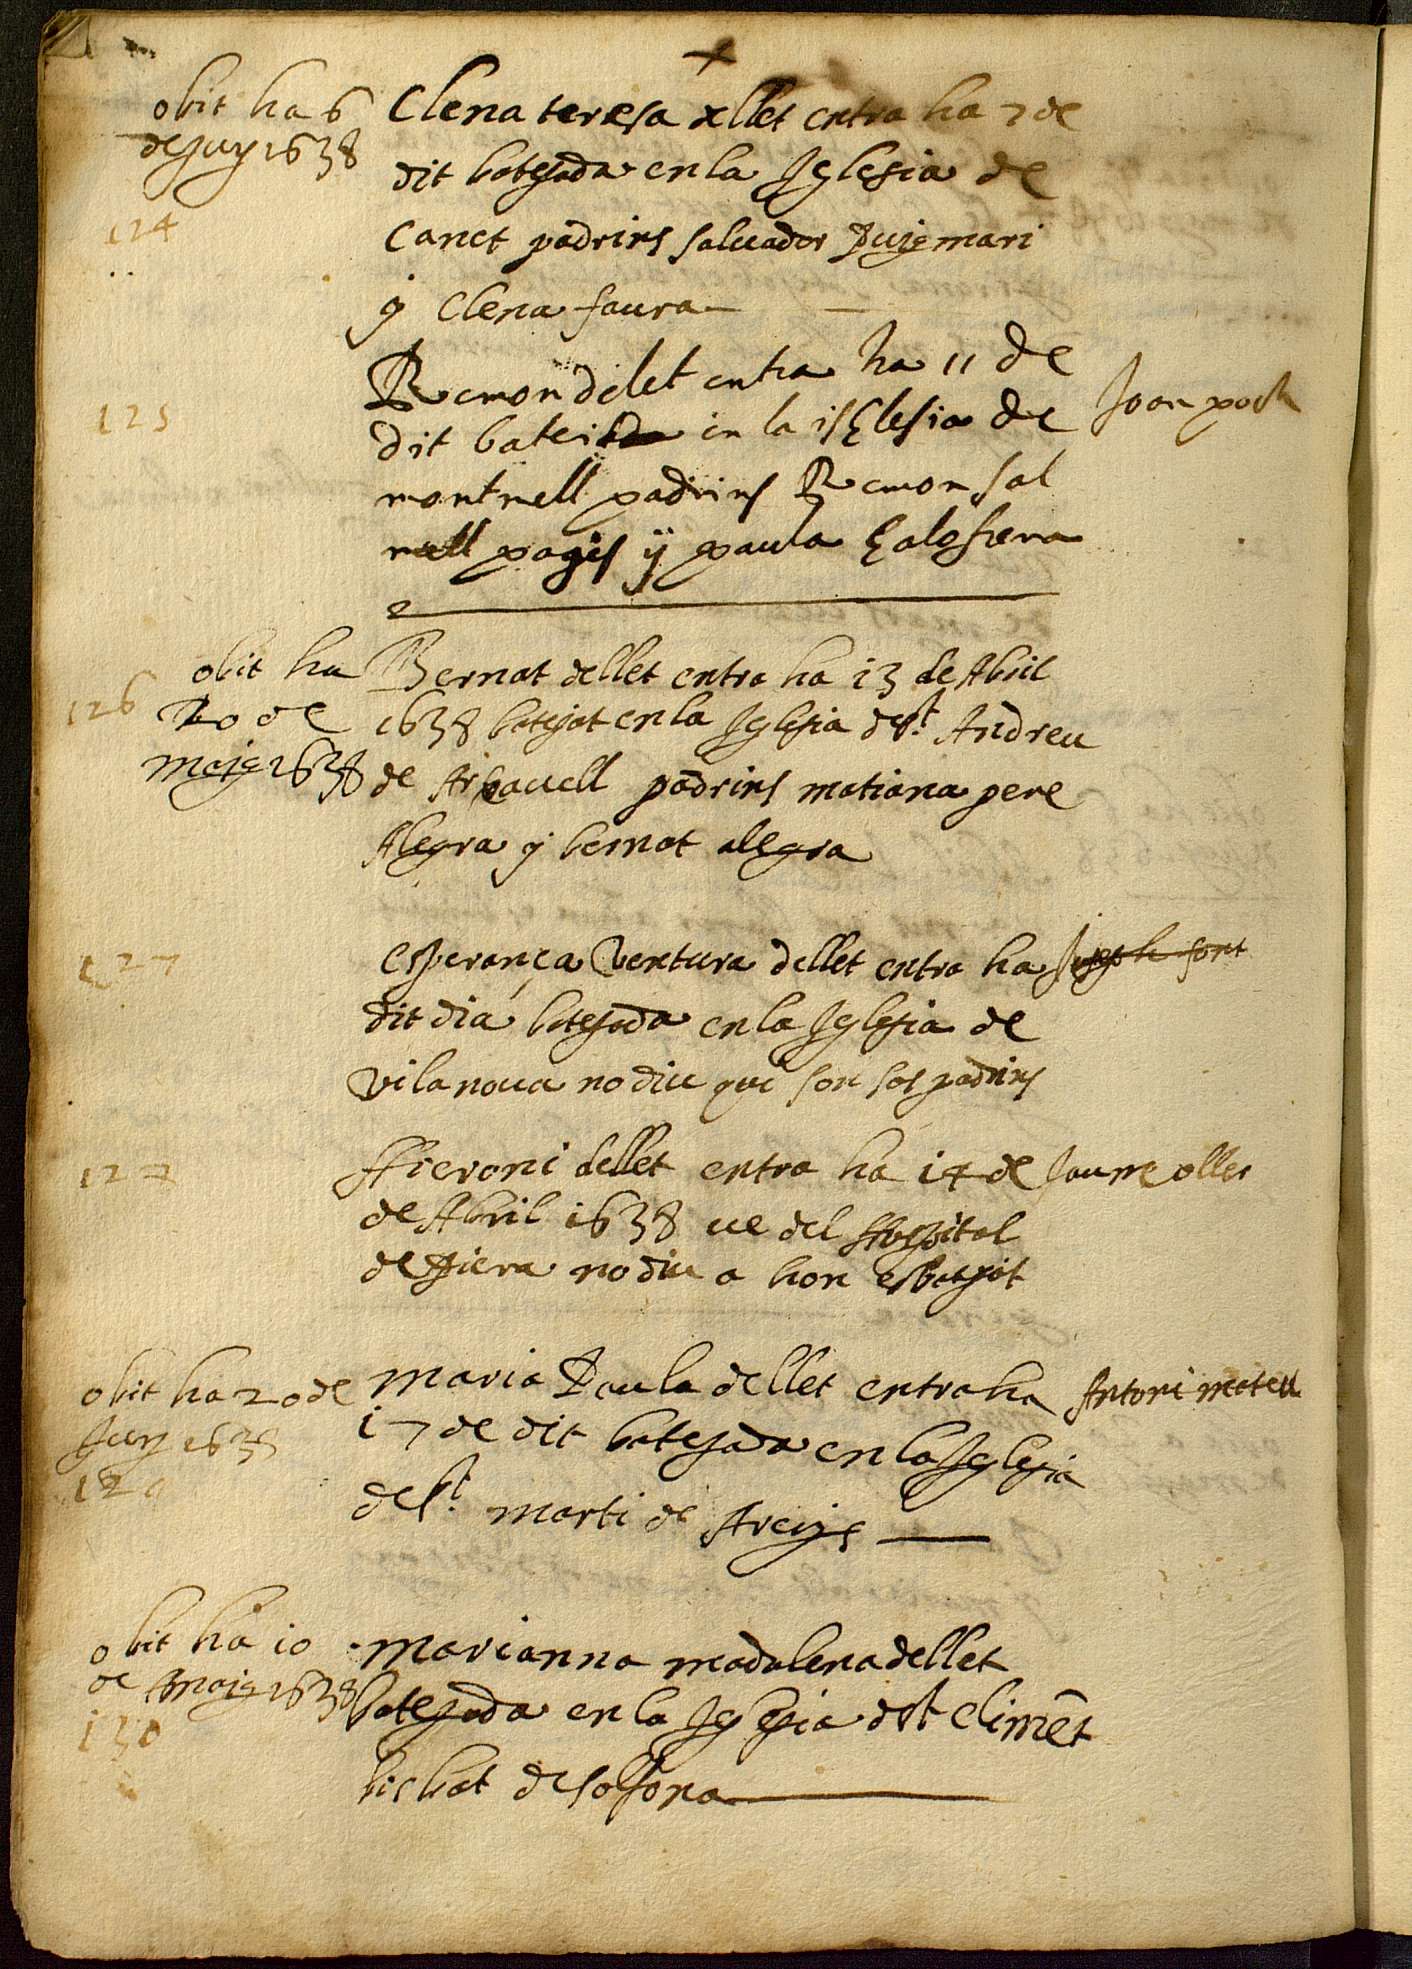 obit ha 6
de juy 1638
124
Elena teresa dllet entra ha 7 de
dit batejada en la Iglesia de
Canet padrins salvador Puigmari
y Elena faura
125
Remon delet entra ha 11 de
dit bateiada in la isglesia de
montnell padrins Remon sal
nell pagis ÿ paula
Joan poch
126
obit ha
20 de
maig 1638
Bernat dellet entra ha 13 de Abril
1638 batejat en la Iglesia de St. Andreu
de Arbauell padrins matiana pere
Alegra y bernat alegra
127
Esperança Ventura dellet entra ha
dit dia batejada en la Iglesia de
Vilanova no diu qui son sos padrins
Joseph font
127
Hieroni dellet entra ha 14 de
de Abril 1638 ve del Hospital
de Piera no diu a hon es batejat
Jaume oller
obit ha 20 de
Juny 1638
129
Maria Paula dellet entra ha
17 de dit batejada en la Iglesia
de St. marti de Areijs
Antoni mateu
obit ha 10
de maig 1638
130
Marianna madalena dellet
batejada en la Iglesia de St Climēt
bisbat de solsona